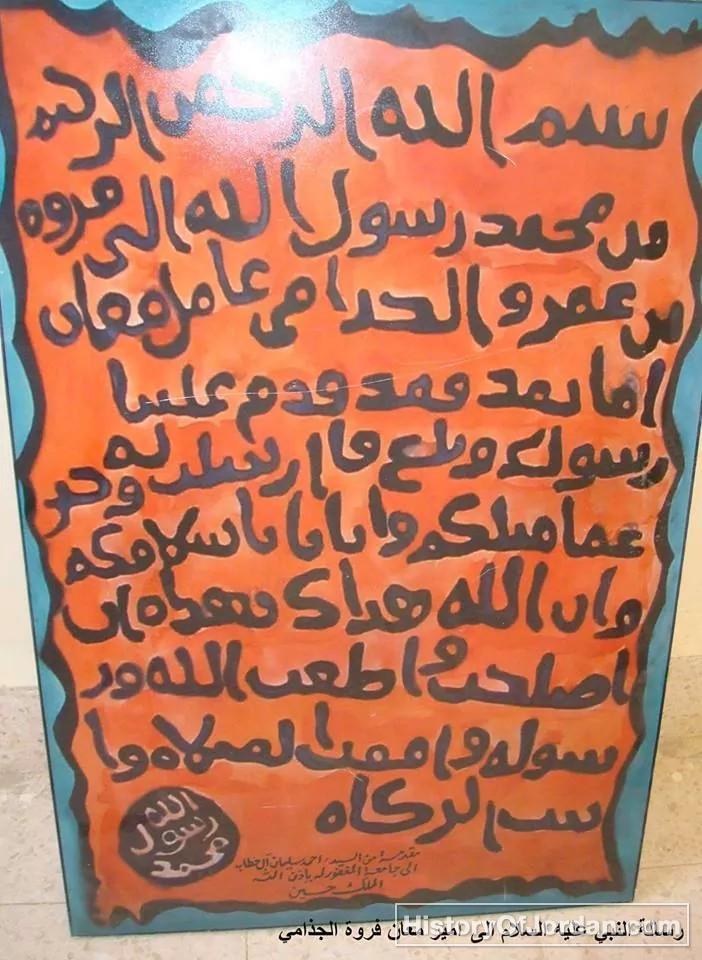 سم الله الرحمن الرحيم
من محمد رسول الله الى فروه
بن عمرو الجذامي عامل معان
اما بعد فقد قدم علينا
رسولك وبلغ ما ارسلت به وخبر
عما قبلكم وانانا باسلامك
وان الله هداك بهداه ان
اصلحت واطعت الله ور
سوله واقمت الصلاه وا
تيت الزكاه
الله
رسول
محمد
مقدمة من السيد: احمد سليمان آل خطاب
الى جامعة المغفور له باذن الله
الملك حسين
HistoryOfJordan.com
رسالة النبي عليه السلام الى امير معان فروة الجذامي